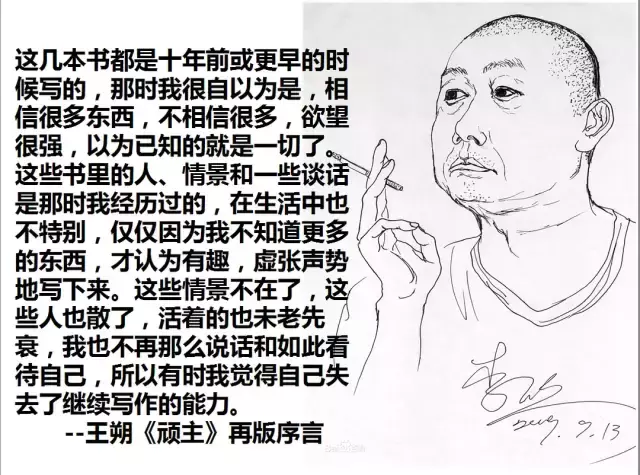 这几本书都是十年前或更早的时
候写的，那时我很自以为是，相
信很多东西，不相信很多，欲望
很强，以为已知的就是一切了。
这些书里的人、情景和一些谈话
是那时我经历过的，在生活中也
不特别，仅仅因为我不知道更多
的东西，才认为有趣，虚张声势
地写下来。这些情景不在了，这
些人也散了，活着的也未老先
衰，我也不再那么说话和如此看
待自己，所以有时我觉得自己失
去了继续写作的能力。
--王朔《顽主》再版序言
9.13